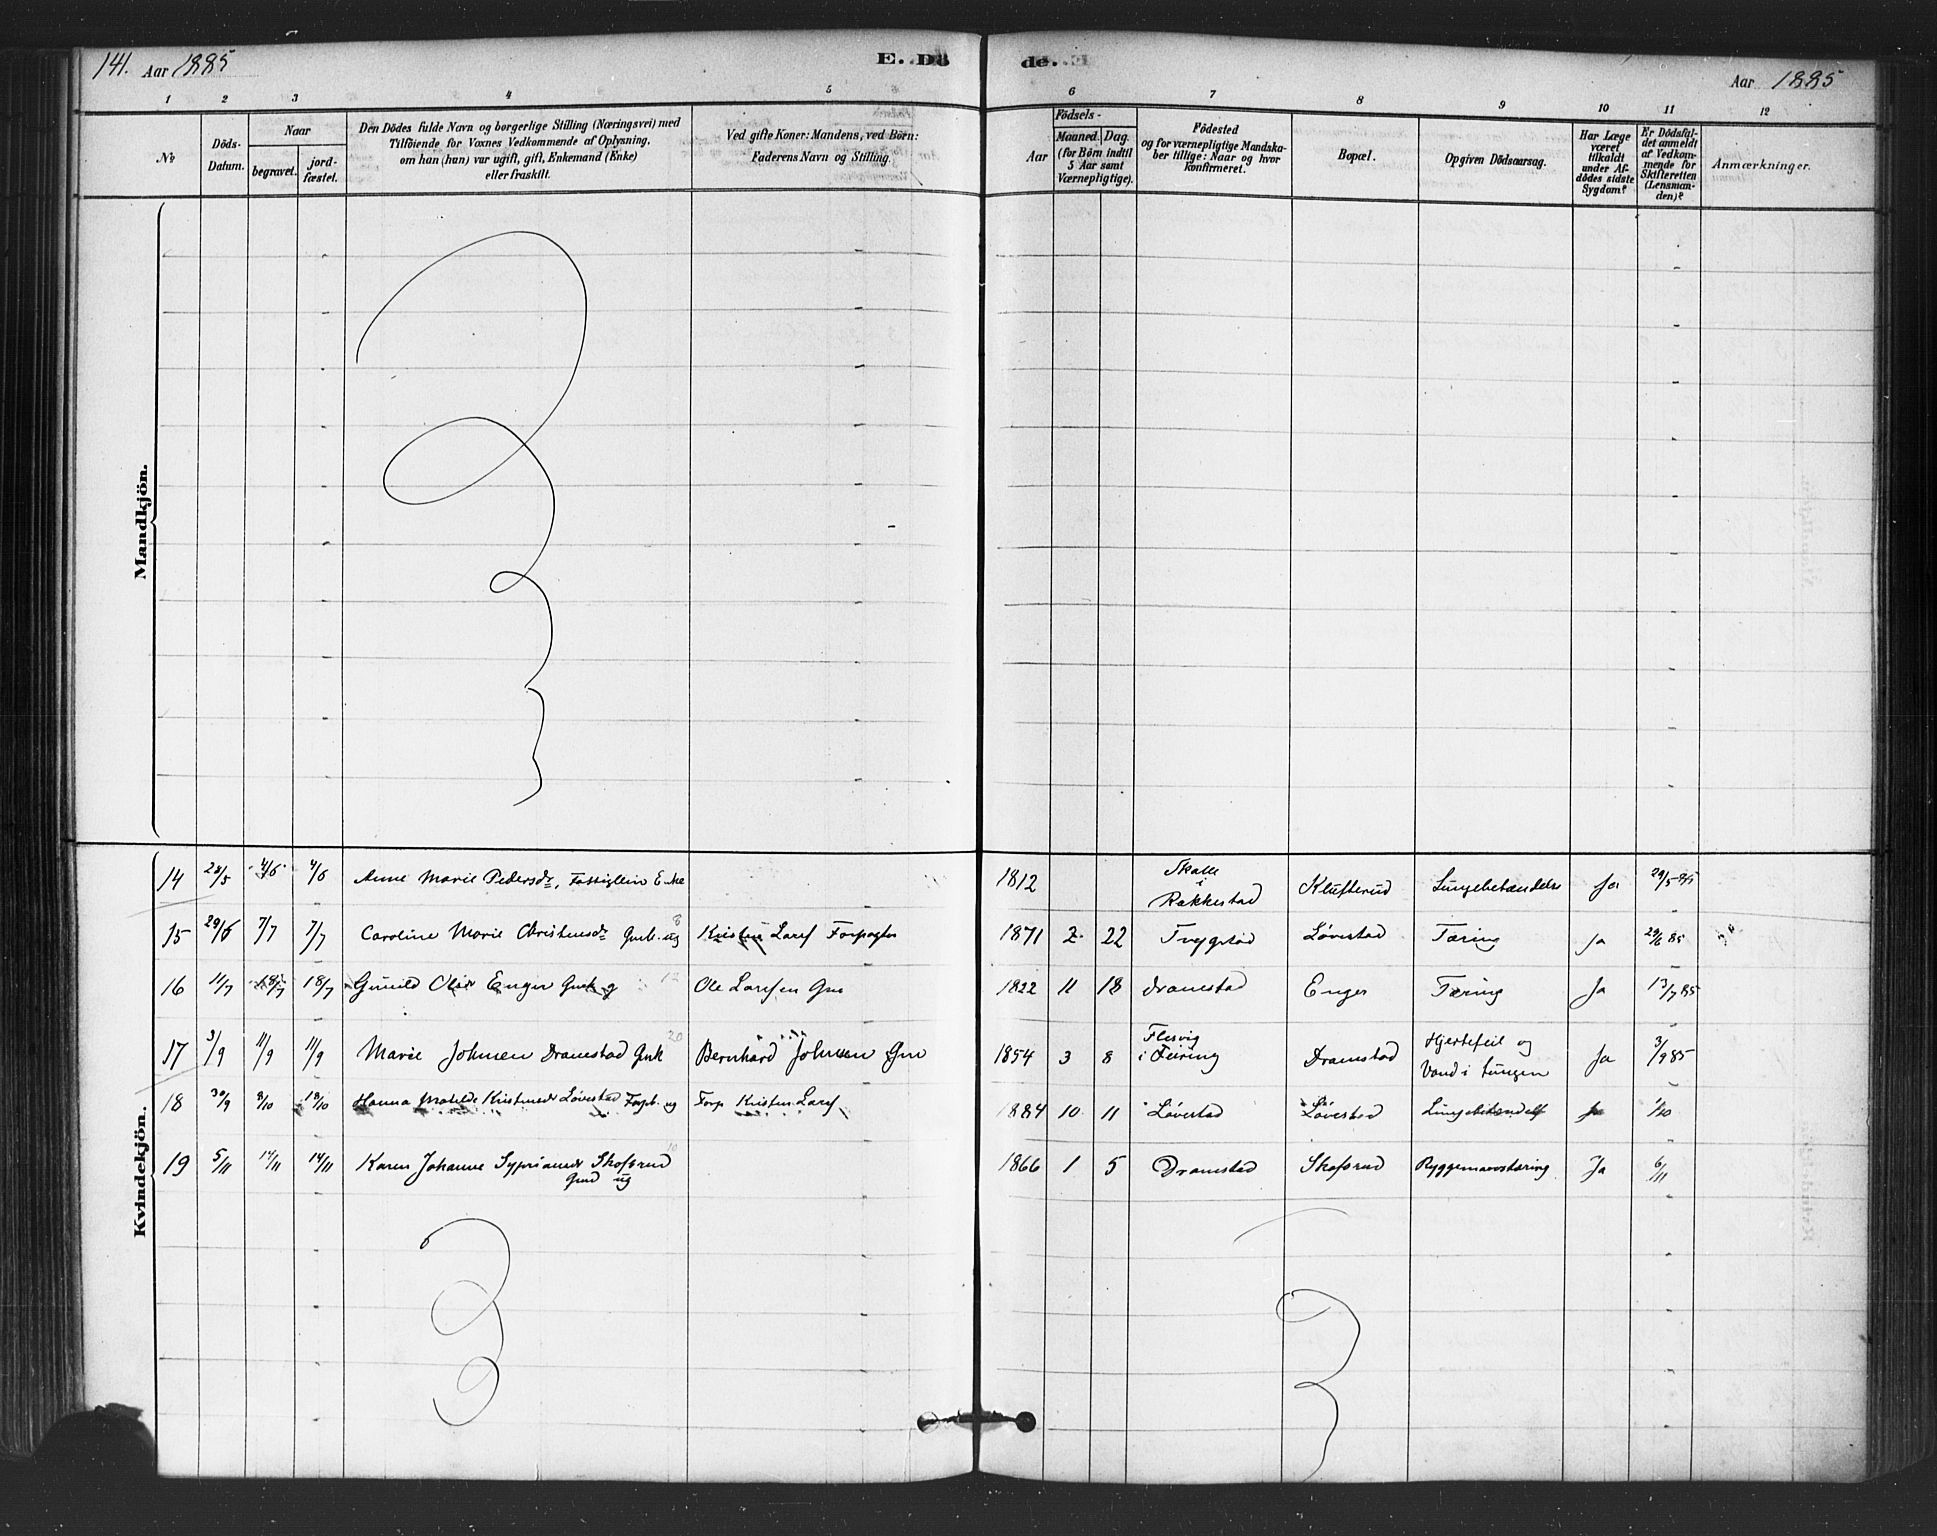 141. Aar 1885 E. Dö de. Aar 1885
1 2 3 4 5 6 7 8 9 10 11 12
№
Döds-
Datum.
Naar
begravet.
jord-
fæstet.
Den Dödes fulde Navn og borgerlige Stilling (Næringsvei) med
Tilföiende for Voxnes Vedkommende af Oplysning,
om han (hun) var ugift, gift, Enkemand (Enke)
eller fraskilt.
Ved gifte Koner: Mandens, ved Börn:
Faderens Navn og Stilling.
Födsels-
Aar
Maaned. Dag.
(for Börn indtil
5 Aar samt
Værnepligtige).
Födested
og for værnepligtige Mandska-
ber tillige: Naar og hvor
konfirmeret.
Bopæl.
Opgiven Dödsaarsag.
Har Læge
været
tilkaldt
under Af-
dödes sidste
Sygdom?
Er Dödsfal-
det anmeldt
af Vedkom-
mende for
Skifteretten
(Lensman-
den)?
Anmærkninger.
Mandkjön.
Kvindekjön.
14 4/6 4/6 Anne Marie Pedersdr, Enke 1812 Skalle i Rakkestad Klufterud Lungebetændelse Ja 29/5 85
15 29/6 7/7 7/7 Caroline Marie Christensdr ug Kristen Lars Forpagter 1871 2 22 Tveggstad Løvestad Tæring Ja 29/6 85
16 11/7 18/7 18/7 Gunild Olsdr Enger Ole Larsen 1822 11 18 Dramstad Enger Tæring Ja 13/7 85
17 3/9 11/9 11/9 Marie Johnsen Dramstad Bernhard Johnsen 1854 3 8 i Feiring Dramstad Hjertefeil og Vand i Lungen Ja 3/9 85
18 30/9 8/10 18/10 Hanna Matilde Kristensdr Løvestad ug Forp. Kristen Lars 1884 10 11 Løvestad Løvestad Lungebetændelse Ja 1/10
19 5/11 14/11 14/11 Karen Johanne Sypriansdr Skofsrud ug 1866 1 5 Dramstad Skofsrud Ryggemarvstæring Ja 6/11